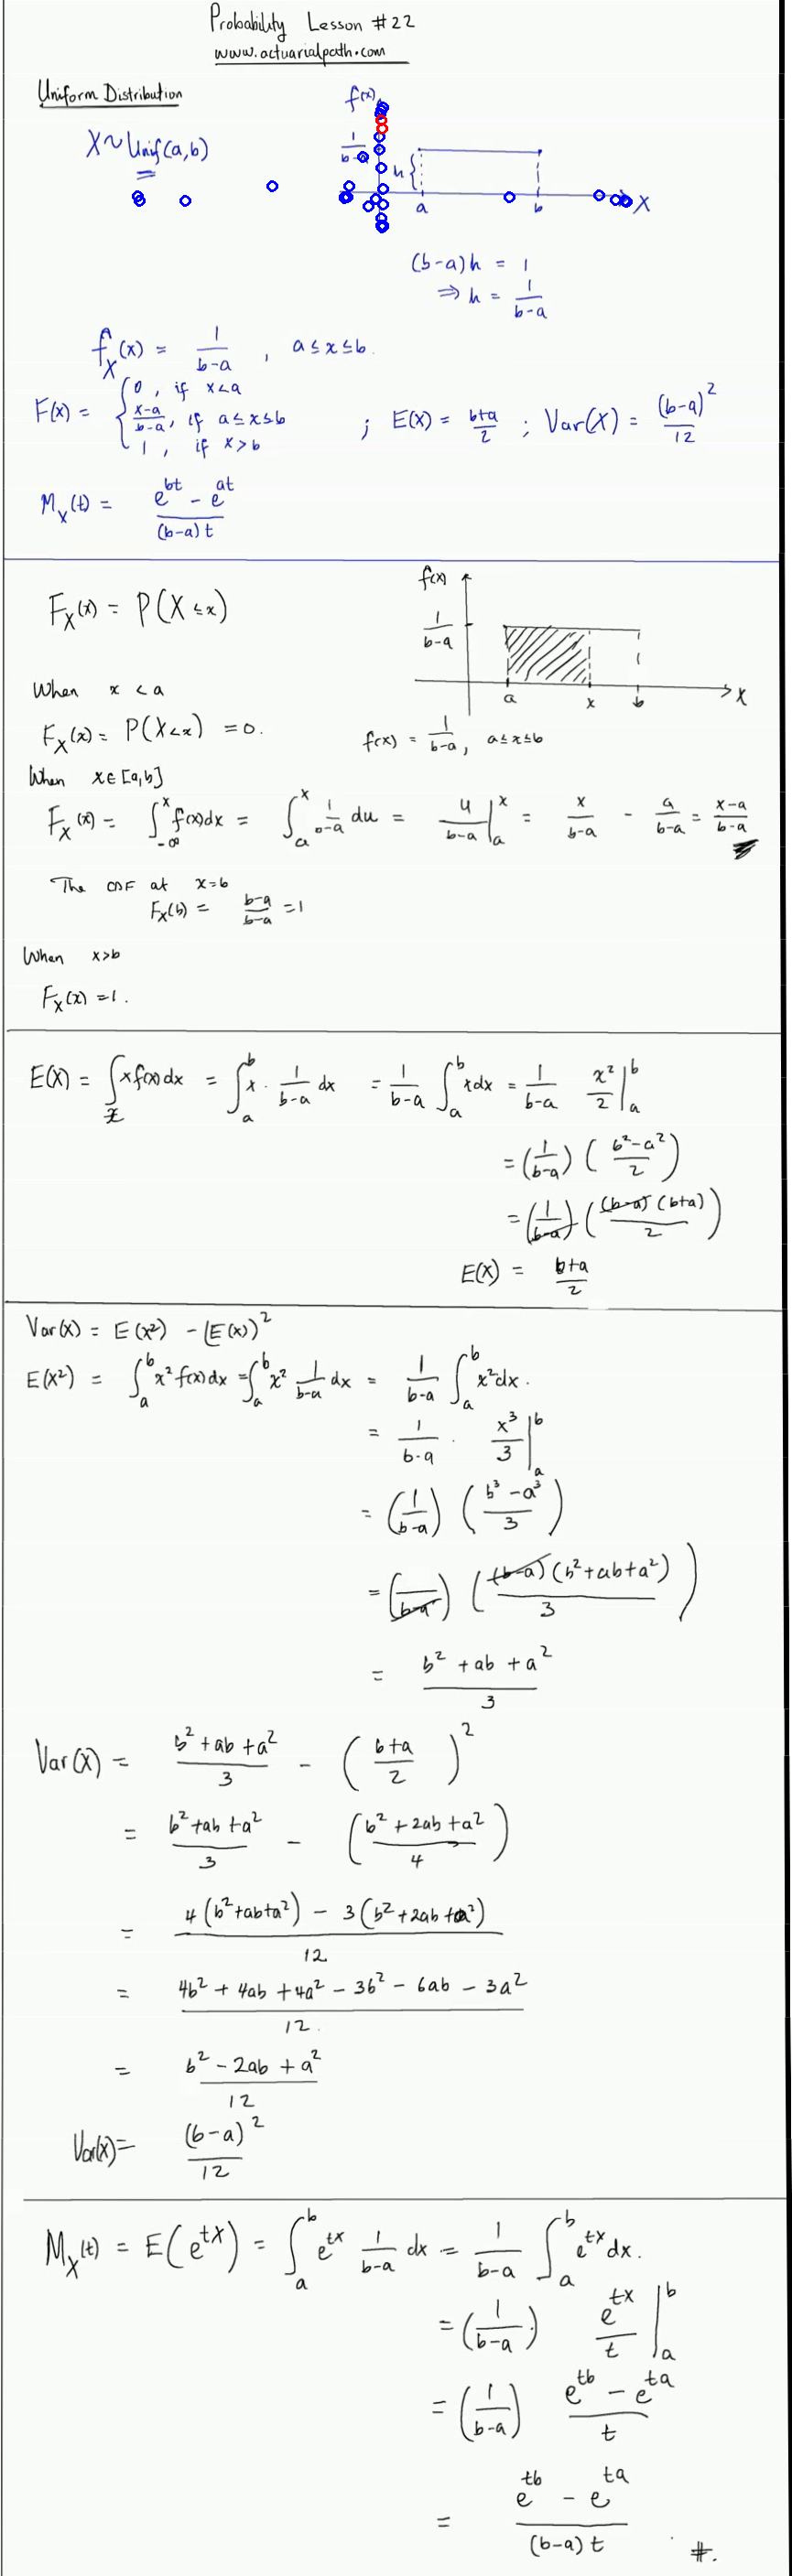 Probability Lesson #22
www.actuarialpath.com
Uniform Distribution
X ~ Unif(a,b)
f(x)
1/(b-a)
h{
a b X
(b-a)h = 1
⇒ h = 1/(b-a)
f_X(x) = 1/(b-a) , a ≤ x ≤ b.
F(x) = { 0, if x<a
(x-a)/(b-a), if a ≤ x ≤ b
1, if x>b
; E(X) = (b+a)/2 ; Var(X) = (b-a)²/12
M_X(t) = (e^{bt} - e^{at})/((b-a)t)
F_X(x) = P(X ≤ x)
f(x)
1/(b-a)
a x b X
f(x) = 1/(b-a), a ≤ x ≤ b
When x < a
F_X(x) = P(X<x) = 0.
When x ∈ [a,b]
F_X(x) = ∫_{-∞}^{x} f(x)dx = ∫_a^x 1/(b-a) du = u/(b-a) |_a^x = x/(b-a) - a/(b-a) = (x-a)/(b-a)
The CDF at x=b
F_X(b) = (b-a)/(b-a) = 1
When x>b
F_X(x) = 1.
E(X) = ∫_x x f(x) dx = ∫_a^b x · 1/(b-a) dx = 1/(b-a) ∫_a^b x dx = 1/(b-a) x²/2 |_a^b
= (1/(b-a)) ((b²-a²)/2)
= (1/(b-a)) ((b-a)(b+a)/2)
E(X) = (b+a)/2
Var(X) = E(X²) - (E(X))²
E(X²) = ∫_a^b x² f(x) dx = ∫_a^b x² 1/(b-a) dx = 1/(b-a) ∫_a^b x² dx.
= 1/(b-a) · x³/3 |_a^b
= (1/(b-a)) ((b³-a³)/3)
= (1/(b-a)) ((b-a)(b²+ab+a²)/3)
= (b²+ab+a²)/3
Var(X) = (b²+ab+a²)/3 - ((b+a)/2)²
= (b²+ab+a²)/3 - ((b²+2ab+a²)/4)
= (4(b²+ab+a²) - 3(b²+2ab+a²))/12
= (4b²+4ab+4a²-3b²-6ab-3a²)/12.
= (b²-2ab+a²)/12
Var(X) = (b-a)²/12
M_X(t) = E(e^{tX}) = ∫_a^b e^{tx} 1/(b-a) dx = 1/(b-a) ∫_a^b e^{tx} dx.
= (1/(b-a)) e^{tx}/t |_a^b
= (1/(b-a)) (e^{tb} - e^{ta})/t
= (e^{tb} - e^{ta})/((b-a)t) #.